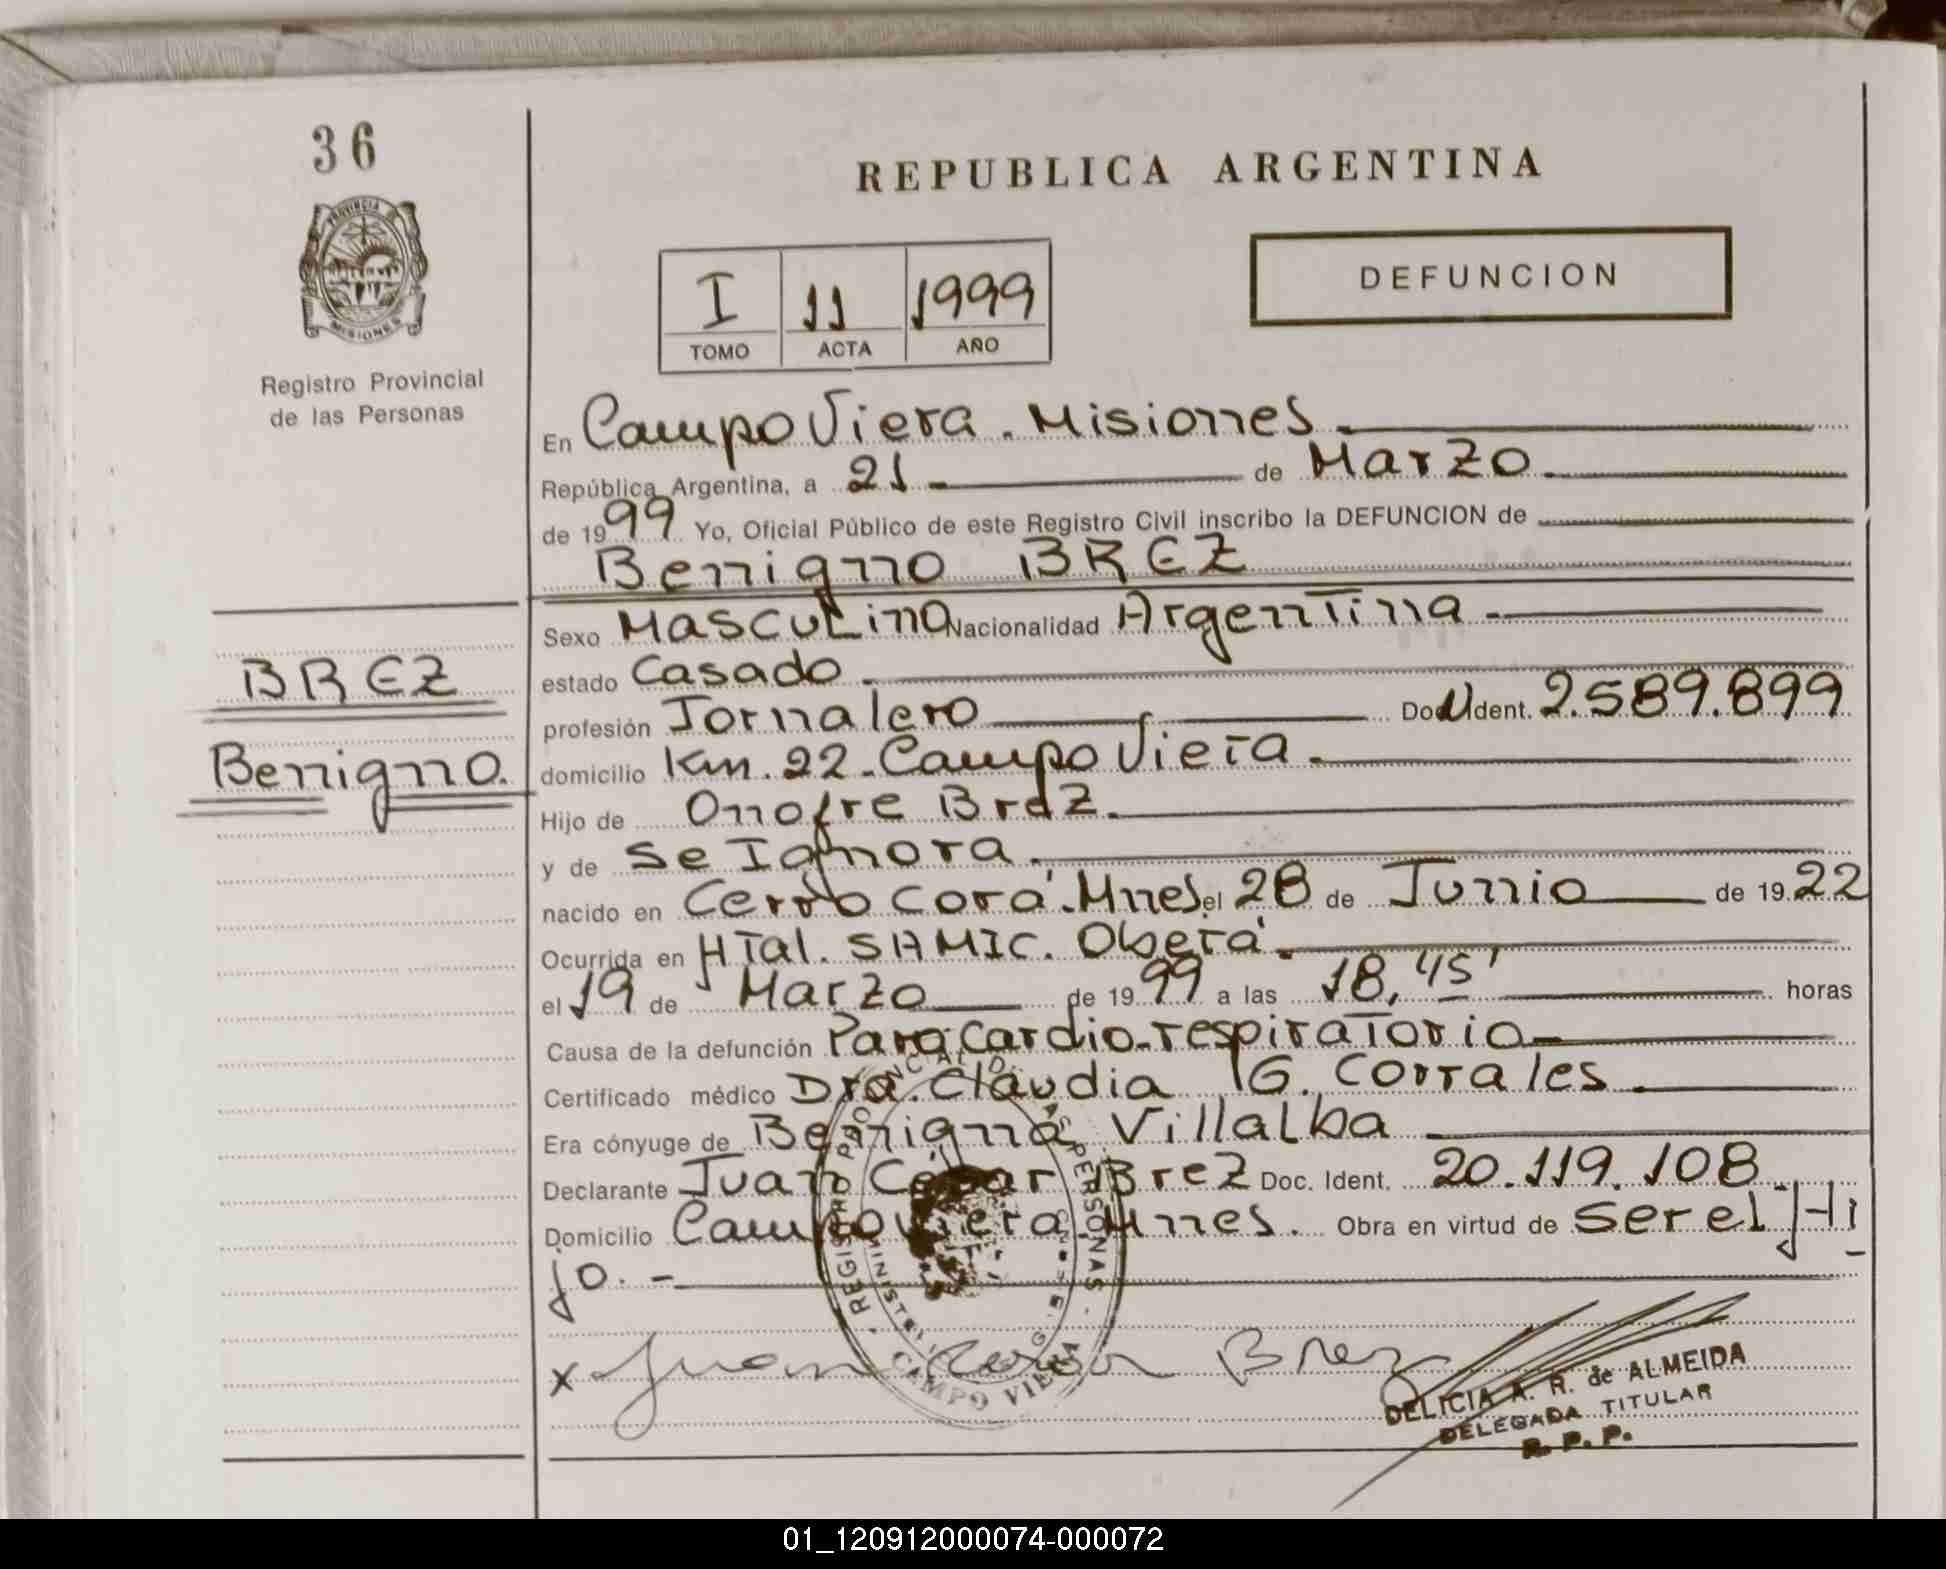 36
PROVINCIA DE
MISIONES
Registro Provincial
de las Personas
REPUBLICA ARGENTINA
I 11 1999
TOMO ACTA AÑO
DEFUNCION
En Campo Viera. Misiones
República Argentina, a 21 de Marzo
de 1999 Yo, Oficial Público de este Registro Civil inscribo la DEFUNCION de
Benigno BREZ
BREZ
Benigno.
Sexo Masculino Nacionalidad Argentina
estado Casado
profesión Jornalero Doc. Ident. 2.589.899
domicilio Km. 22 - Campo Viera
Hijo de Onofre Brez.
y de Se Ignora.
nacido en Cerro Corá. Mnes. el 28 de Junio de 1922
Ocurrida en HTal. SAMIC. Oberá
el 19 de Marzo de 1999 a las 18,45' horas
Causa de la defunción Paro cardio-respiratorio
Certificado médico Dra. Claudia G. Corrales
Era cónyuge de Benigna Villalba
Declarante Juan César Brez Doc. Ident. 20.119.108
Domicilio Campo Viera, Mnes. Obra en virtud de Ser el Hi
jo. -
REGISTRO PROVINCIAL DE LAS PERSONAS
CAMPO VIERA
x Juan Cesar Brez
DELICIA A. R. de ALMEIDA
DELEGADA TITULAR
R. P. P.
01_120912000074-000072